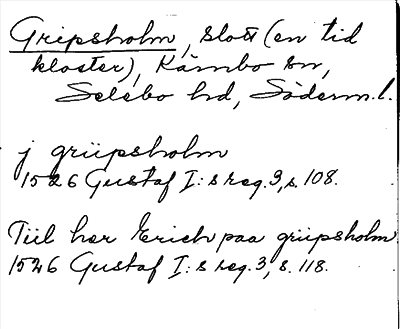 Gripsholm, slott (en tid
kloster), Kärnbo sn,
Selebo hd, Söderm.l.
j griipsholm
1526 Gustaf I:s reg. 3, s. 108.
Tiil her Erich paa griipsholm
1526 Gustaf I:s reg. 3, s. 118.